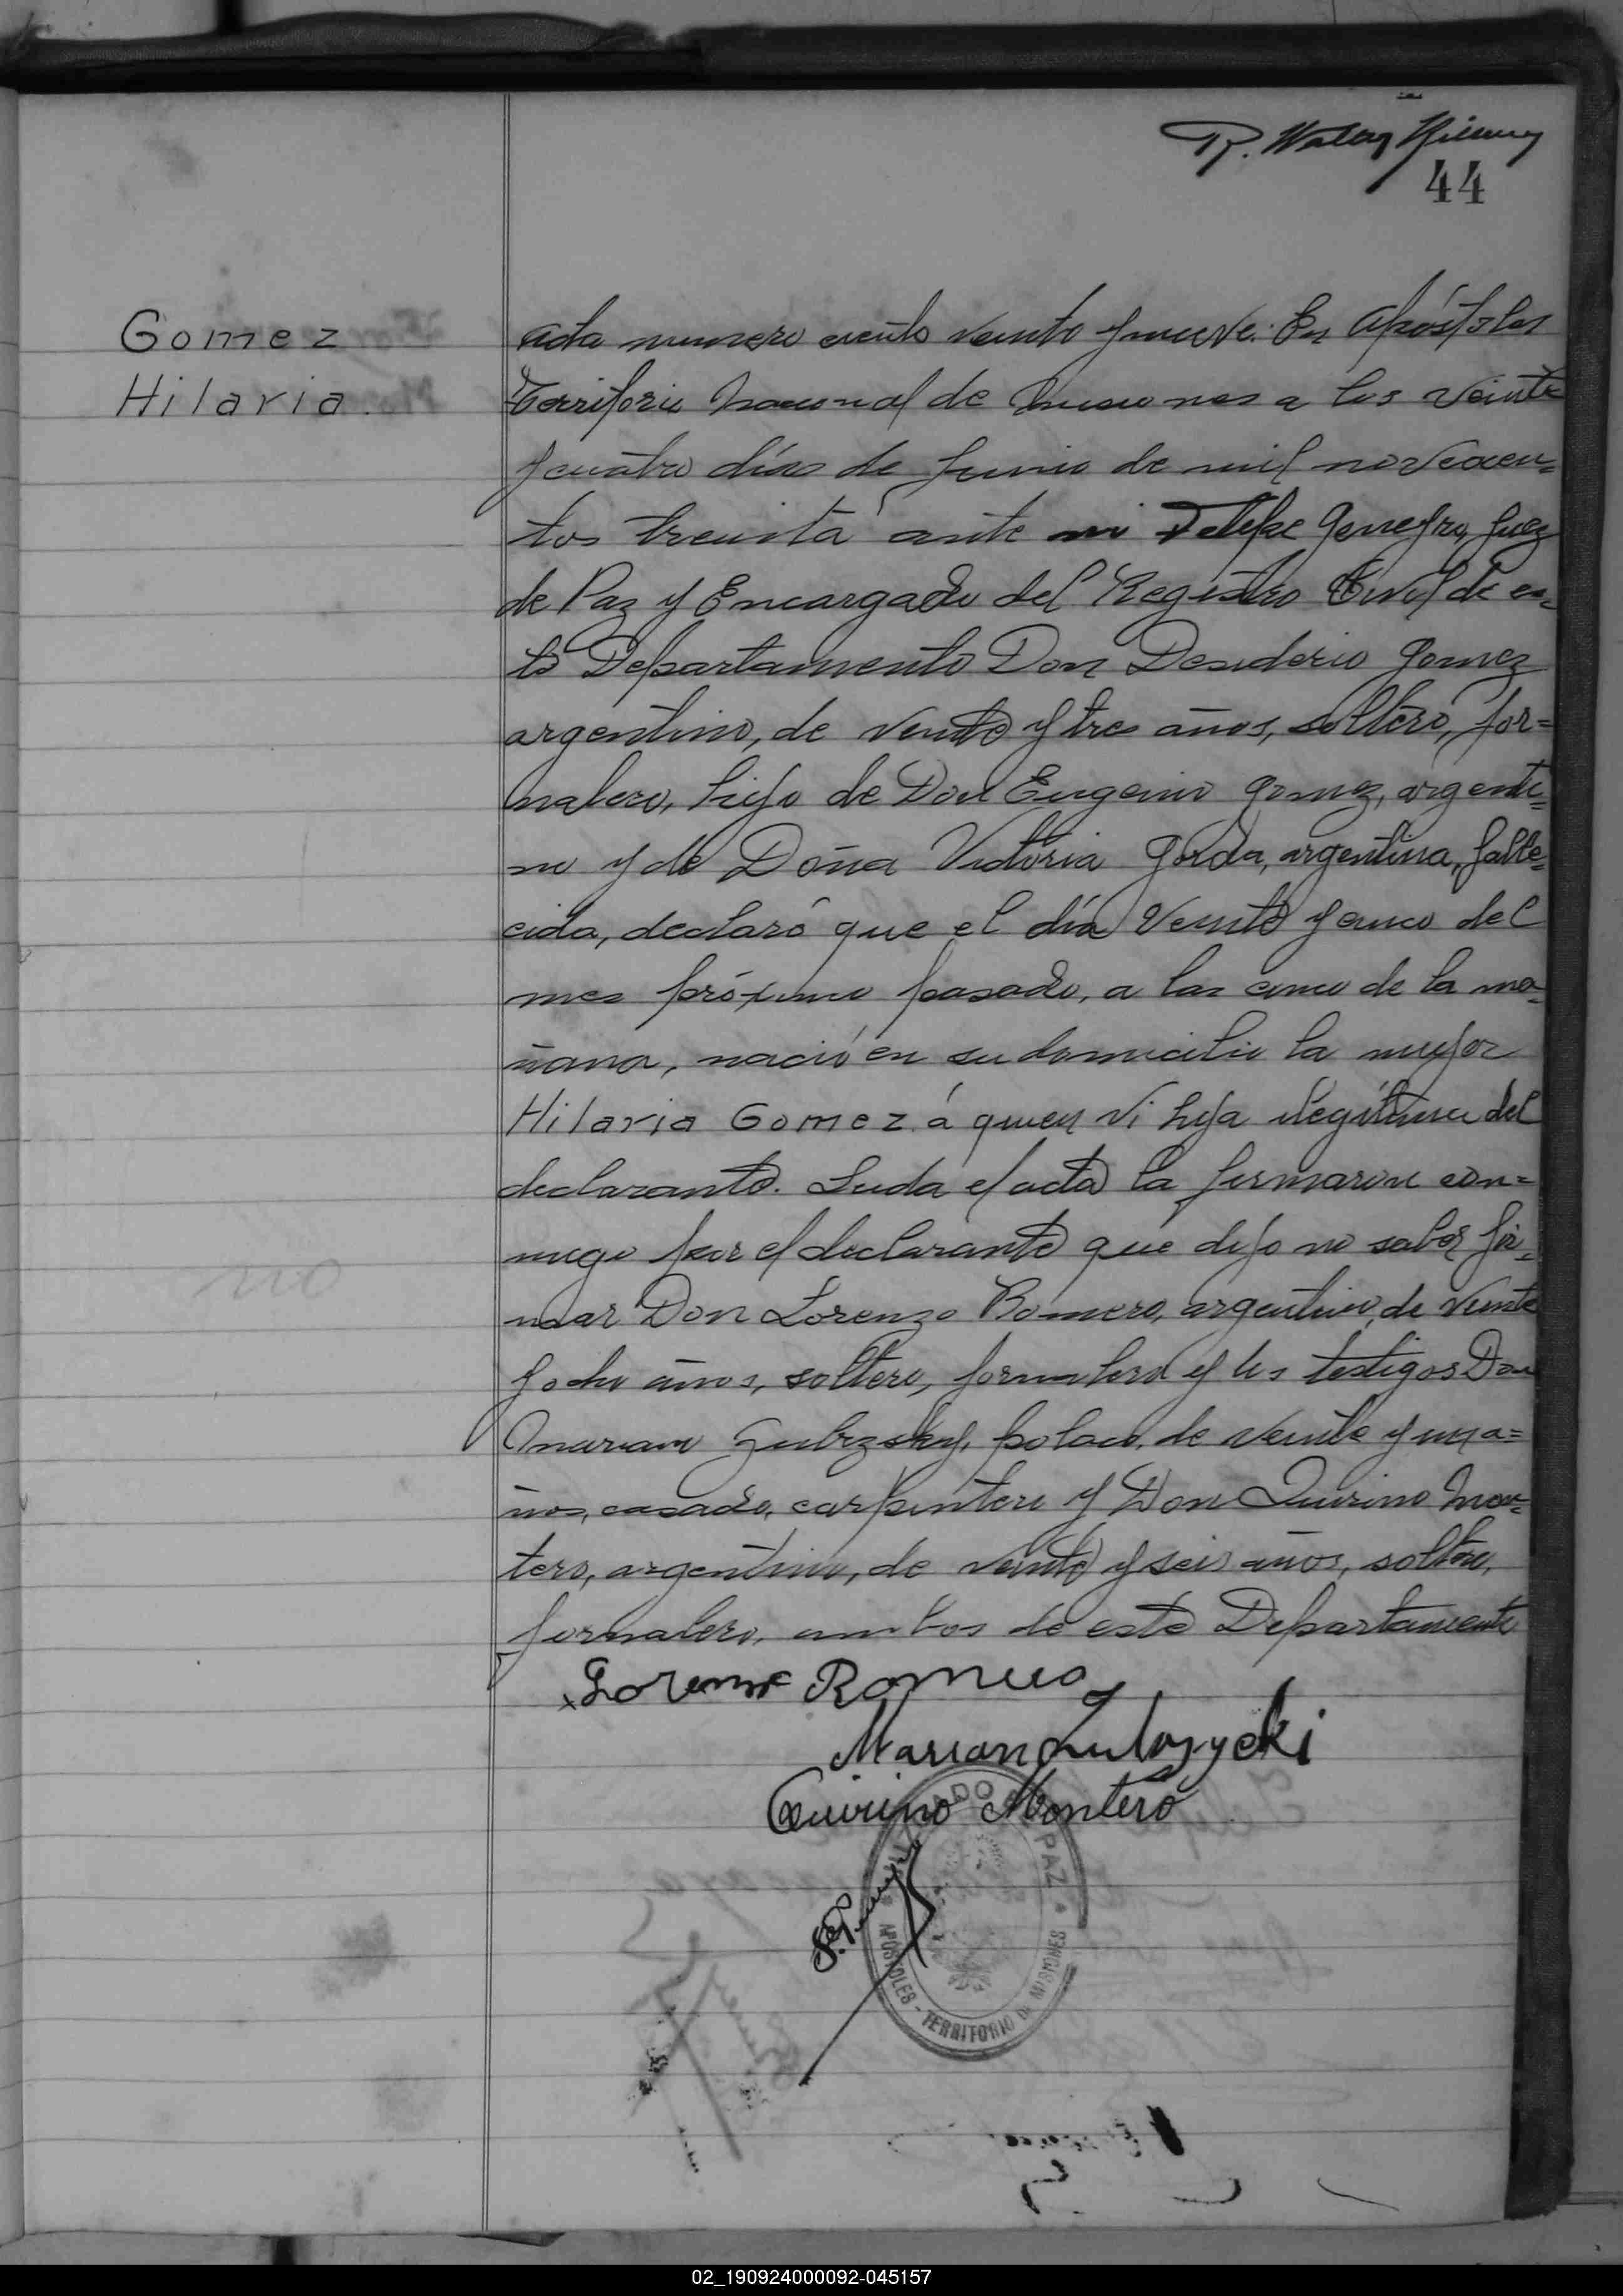 44
Gomez
Hilaria.
Acta numero ciento veinte y nueve. En Apóstoles
Territorio Nacional de Misiones a los veinte
y cuatro días de Junio de mil novecien=
tos treinta ante mi Felipe Juez
de Paz y Encargado del Registro Civil de es=
te Departamento Don Desiderio Gomez
argentino, de veinte y tres años, soltero, jor=
nalero, hijo de Don Eugenio Gomez, argenti=
no y de Doña Victoria Gorda, argentina, falle=
cida, declaró que el día veinte y cinco del
mes próximo pasado, a las cinco de la ma=
ñana, nació en su domicilio la mujer
Hilaria Gomez á quien vi hija ilegítima del
declarante. Leida el acta la firmaron con=
migo por el declarante que dijo no saber fir=
mar Don Lorenzo Romero, argentino, de veinte
y ocho años, soltero, jornalero y los testigos Don
Marian polaco, de veinte y un a=
ños, casado, carpintero y Don Quirino Mon=
tero, argentino, de veinte y seis años, soltero,
jornalero, ambos de este Departamento
no
Lorenzo Romero
Marian
Quirino Montero
JUZGADO DE PAZ
APÓSTOLES - TERRITORIO DE MISIONES
02_190924000092-045157